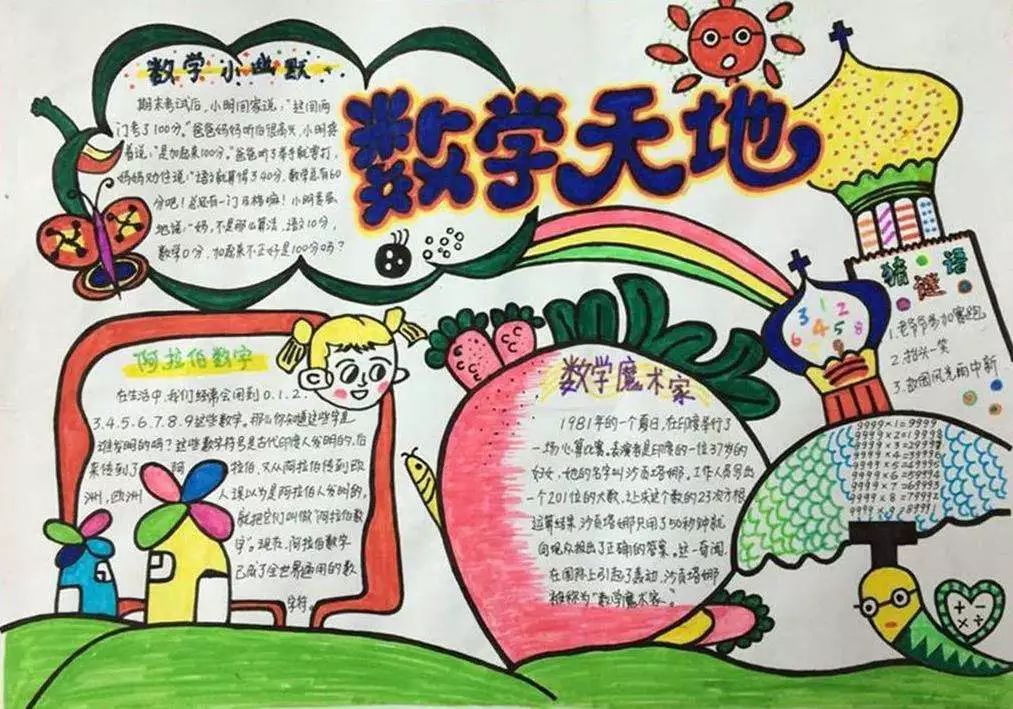 数学天地
数学小幽默
期末考试后,小明回家说:"这回两
门考了100分。"爸爸妈妈听后很高兴,小明接
着说:"是加起来100分。"爸爸听了举手就要打,
妈妈劝住说:"语文就算得了40分,数学总有60
分吧!总还有一门及格嘛!小明委屈
地说:"妈,不是那么算法,语文10分,
数学0分,加起来不正好是100分吗?
阿拉伯数字
在生活中,我们经常会用到0.1.2.
3.4.5.6.7.8.9这些数字。那么你知道这些字是
谁发明的吗?这些数字符号是古代印度人发明的,后
来传到了阿拉伯,又从阿拉伯传到欧
洲,欧洲人误以为是阿拉伯人发明的,
就把它们叫做"阿拉伯数
字"。现在,阿拉伯数字
已成了全世界通用的数
字符。
数学魔术家
1981年的一个夏日,在印度举行了
一场心算比赛。表演者是印度的一位37岁的
妇女,她的名字叫沙贡塔娜。工作人员写出
一个201位的大数,让求这个数的23次方根
运算结果沙贡塔娜只用了50秒钟就
向观众报出了正确的答案。这一奇闻
在国际上引起了轰动,沙贡塔娜
被称为"数学魔术家"。
猜谜语
1.老爷爷参加赛跑
2.抬头一笑
3.故国风光雨中新
3 1 2
6 4 5 8
9999×1=9999
9999×2=19998
9999×3=29997
9999×4=39996
9999×5=49995
9999×6=59994
9999×7=69993
9999×8=79992
9999×9=89991
+ -
× ÷